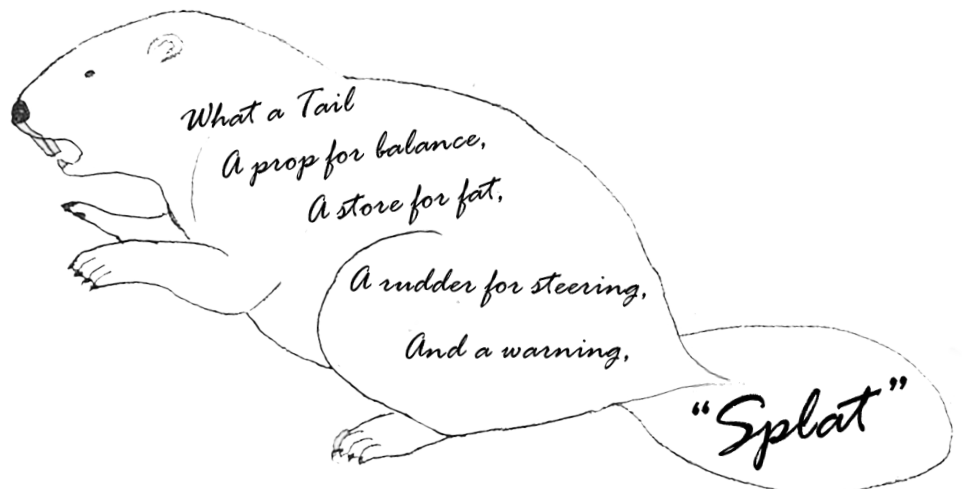 What a Tail
A prop for balance,
A store for fat,
A rudder for steering,
And a warning,
“Splat”